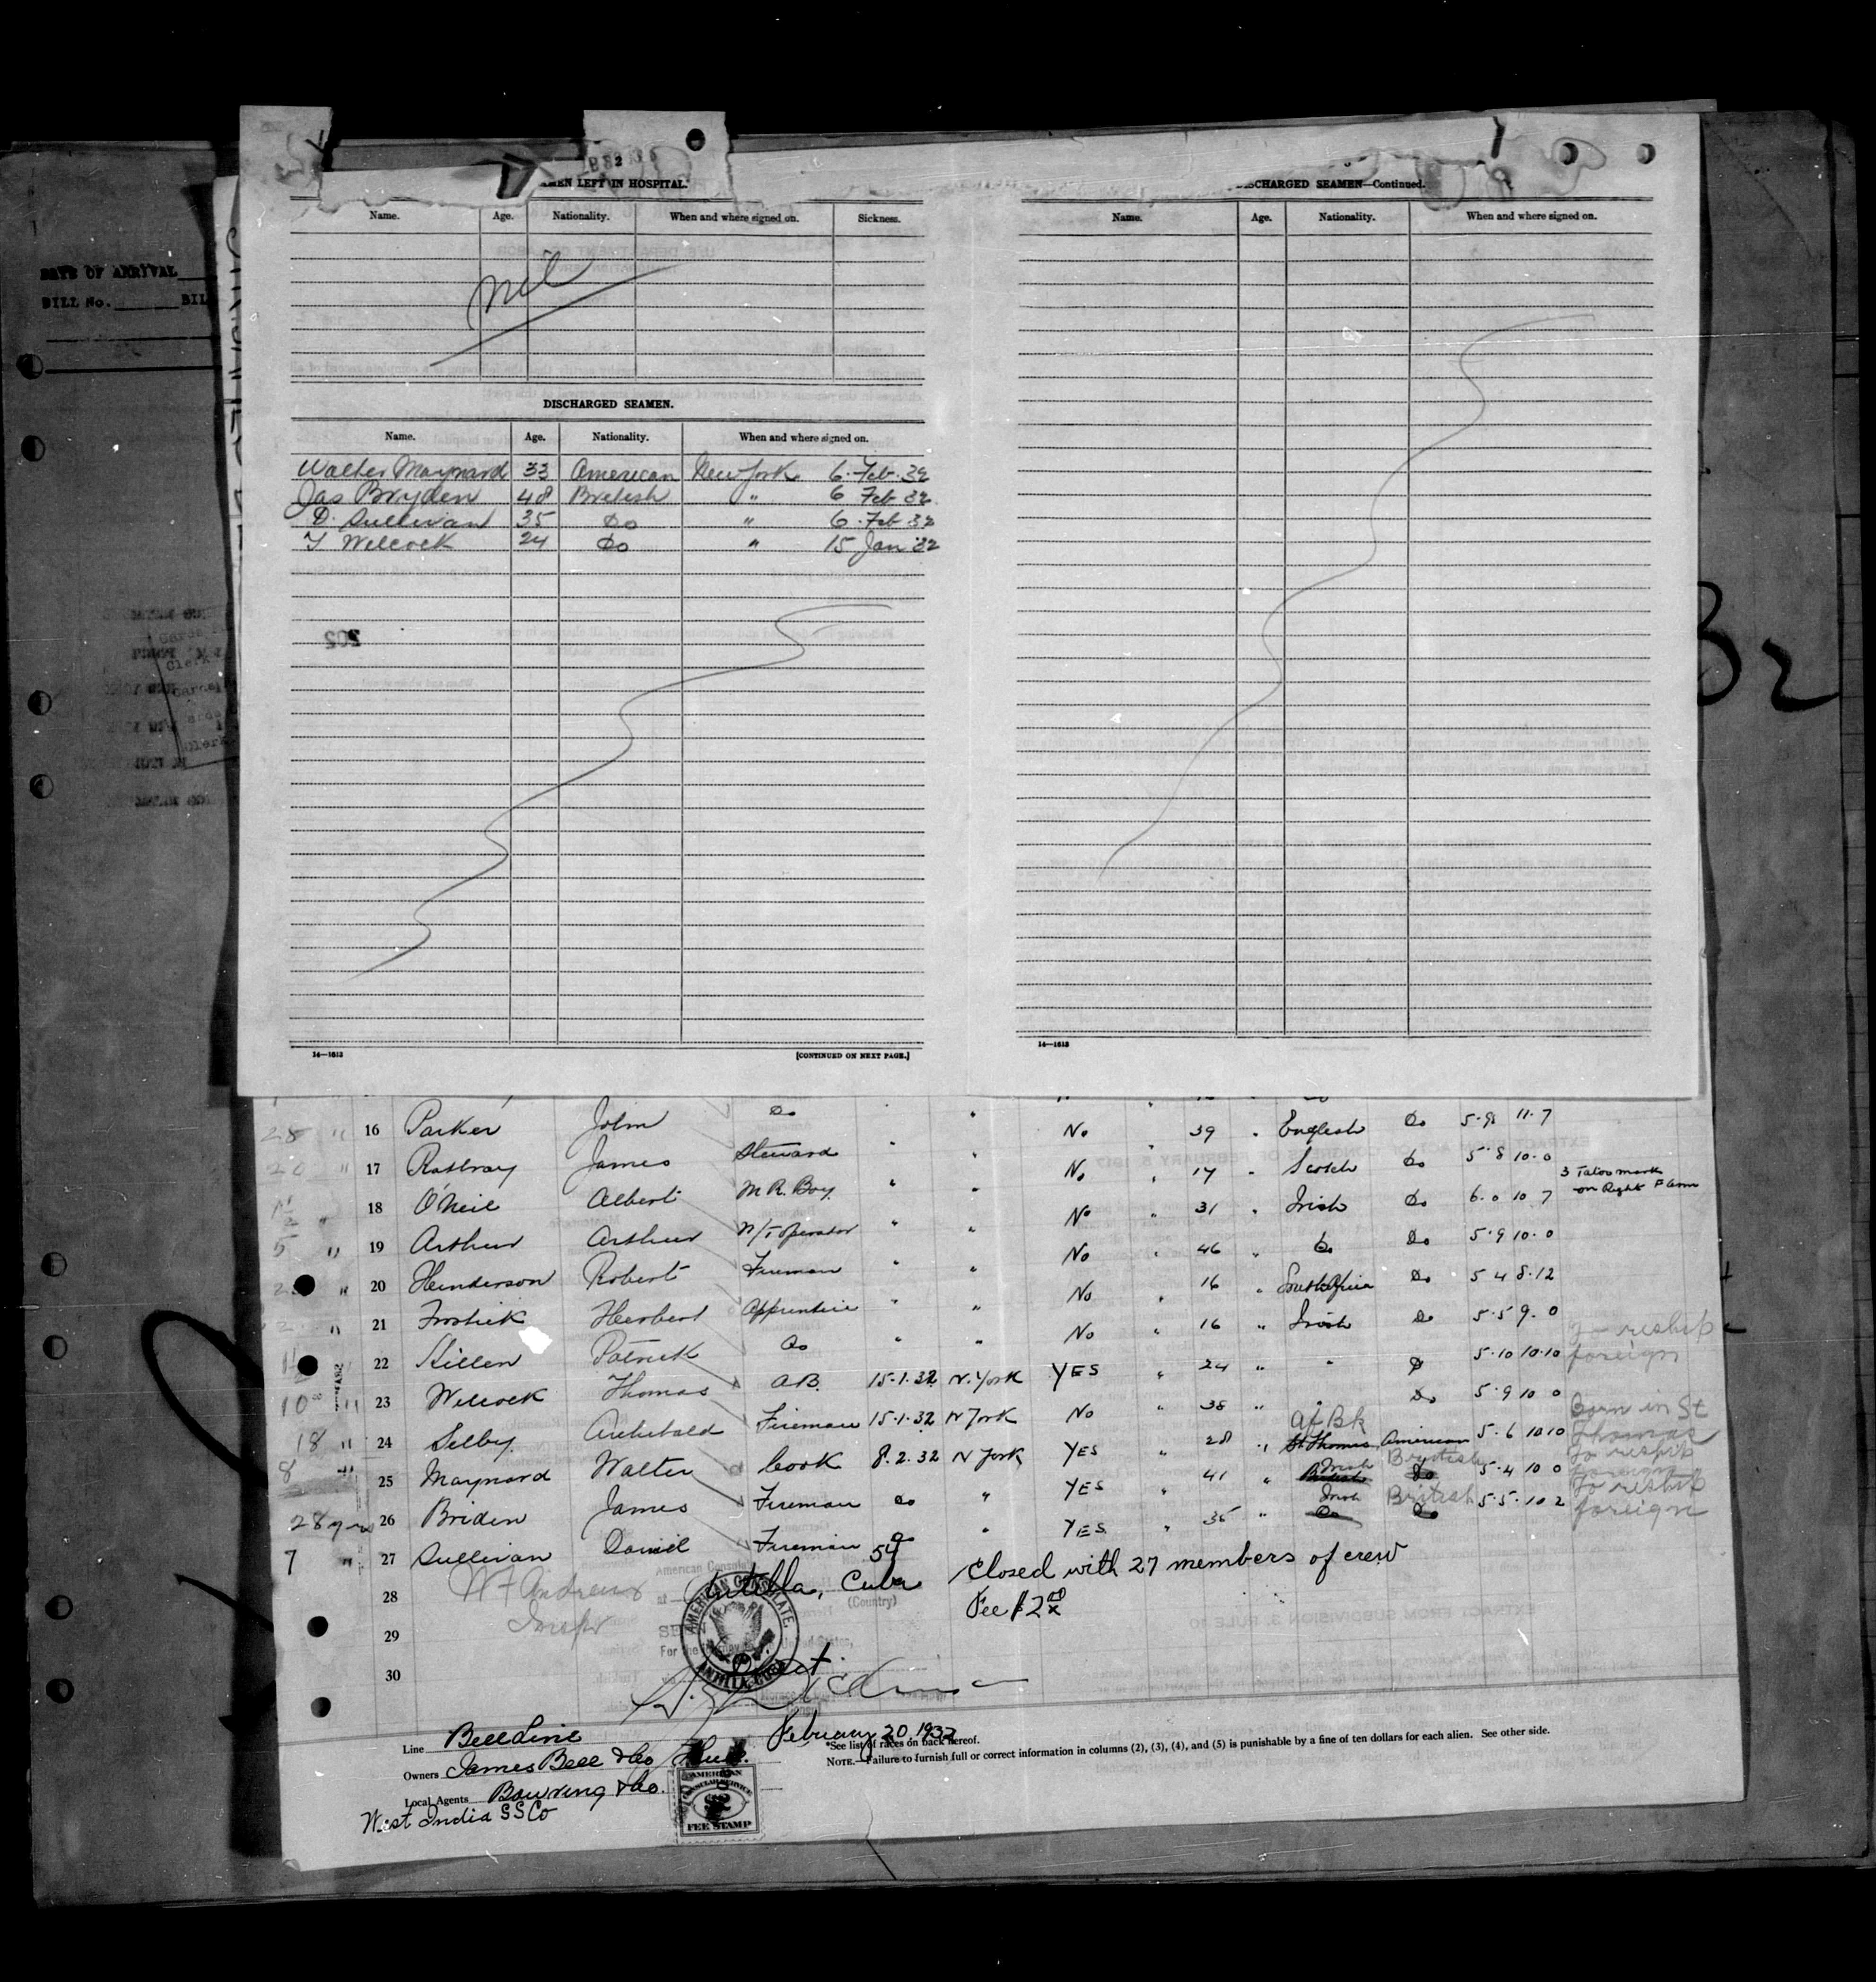 DATE OF ARRIVAL
BILL No.
SEAMEN LEFT IN HOSPITAL.
Name. Age. Nationality. When and where signed on. Sickness.
nil
DISCHARGED SEAMEN.
Name. Age. Nationality. When and where signed on.
Walter Maynard 33 American New York 6. Feb. 32
Jas Bryden 48 British " 6 Feb 32
D. Sullivan 35 Do " 6. Feb 32
T Welcock 24 Do " 15 Jan 32
14—1613 [CONTINUED ON NEXT PAGE.]
DISCHARGED SEAMEN—Continued.
Name. Age. Nationality. When and where signed on.
14—1613
32
16 Parker John Do " No " 39 " English Do 5·9½ 11·7
17 Rattray James Steward " " No " 17 " Scotch Do 5·8 10·0
3 Tatoo mark on Right F arm
18 O'Neil Albert M R. Boy " " No " 31 " Irish Do 6·0 10 7
5 " 19 Arthur Arthur W/T Operator " " No " 46 " Do Do 5·9 10·0
20 Henderson Robert Fireman " " No " 16 " South Africa Do 5 4 8·12
21 Frostick Herbert Apprentice " " No " 16 " Irish Do 5·5 9·0
22 Killen Patrick Do " " YES " 24 " " Do 5·10 10·10
reship foreign
10 " 23 Welcock Thomas A.B. 15·1·32 N. York No " 38 " " Do 5·9 10 0
18 " 24 Selby Archibald Fireman 15·1·32 N York YES " 28 " Af Bk St Thomas American 5·6 10 10
Born in St Thomas
8 " 25 Maynard Walter Cook 8.2.32 N York YES " 41 " Irish British Do 5·4 10 0
To reship foreign
28 yrs 26 Briden James Fireman Do " YES " 35 " Irish British Do 5·5·10 2
To reship foreign
7 " 27 Sullivan Daniel Fireman
28 W F Andrews
Inspr
American Consulate
at Antilla, Cuba
(Country)
Closed with 27 members of crew
Fee $2 00
29
AMERICAN CONSULATE
ANTILLA, CUBA
30
February 20, 1932
Line Bell Line
Owners James Bell & Co Hull.
Local Agents Bowring & Co.
West India SS Co
AMERICAN
CONSULAR SERVICE
FEE STAMP
*See list of races on back hereof.
NOTE.—Failure to furnish full or correct information in columns (2), (3), (4), and (5) is punishable by a fine of ten dollars for each alien. See other side.